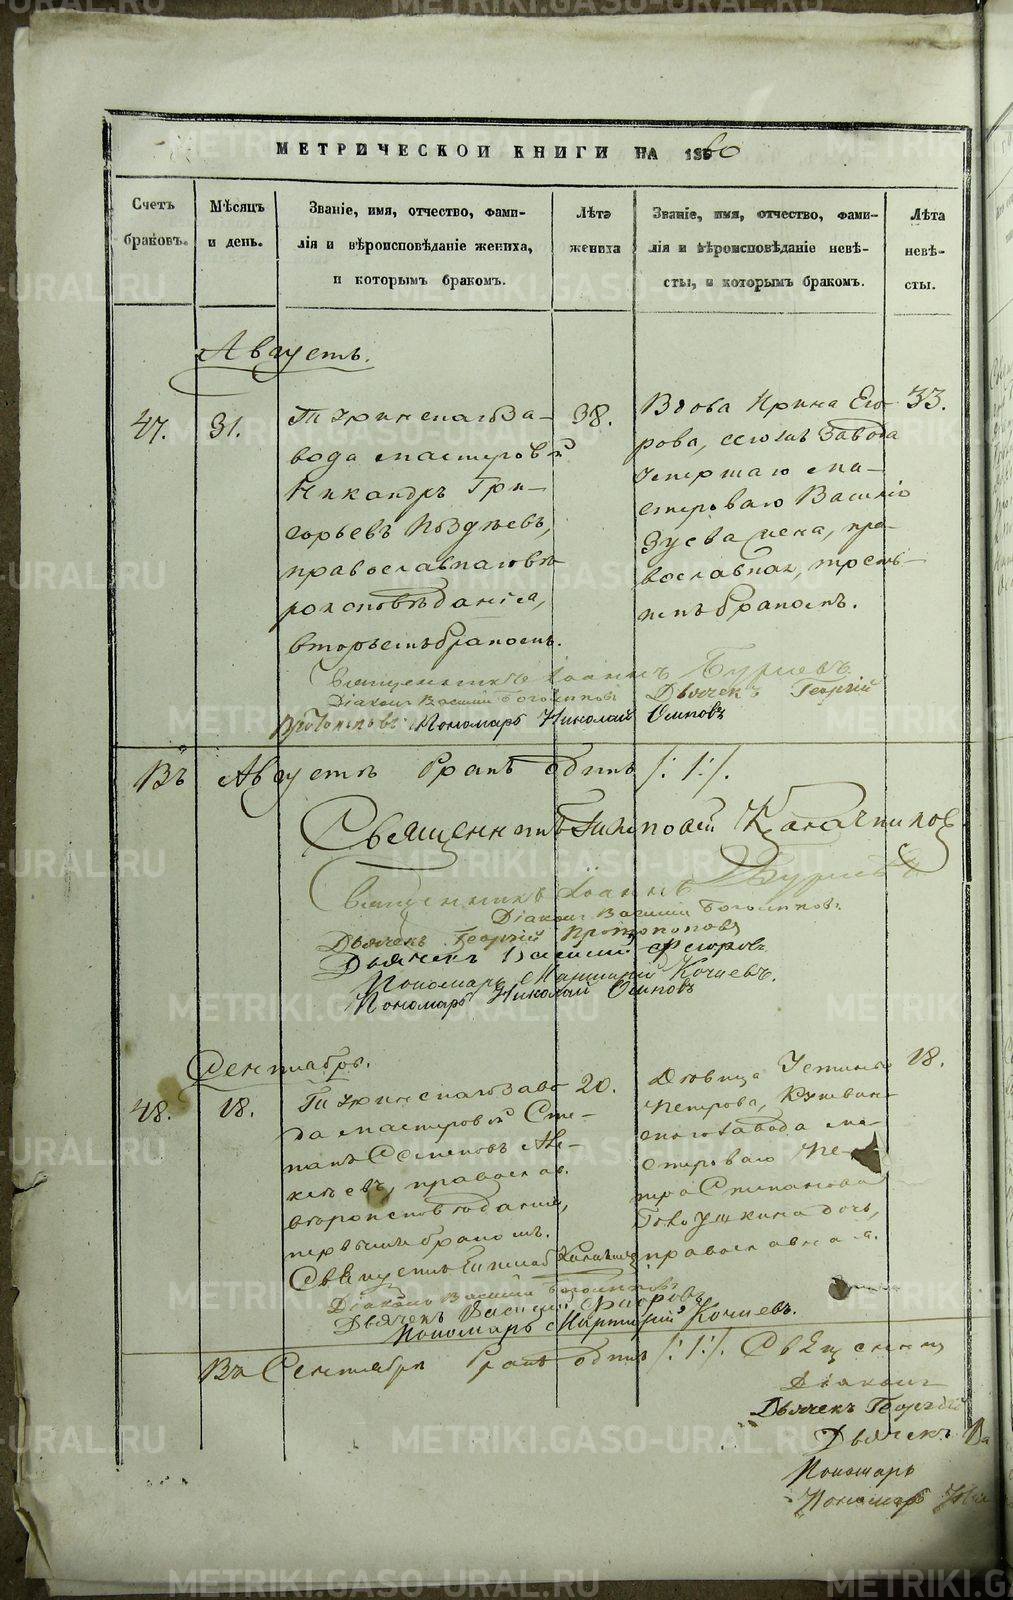 МЕТРИЧЕСКОЙ КНИГИ НА 1860
Счетъ браковъ.
Мѣсяцъ и день.
Званіе, имя, отчество, фами-
лія и вѣроисповѣданіе жениха,
и которымъ бракомъ.
Лѣта жениха
Званіе, имя, отчество, фами-
лія и вѣроисповѣданіе невѣ-
сты, и которымъ бракомъ.
Лѣта невѣ-
сты.
Августъ.
47.
31.
Туринскаго за-
вода мастеровой
Никандръ Гри-
горьевъ Позднѣевъ,
православнаго вѣ-
роисповѣданія,
вторымъ бракомъ.
38.
Вдова Ирина Его-
рова, сегожъ завода
умершаго ма-
стероваго Василія
Зуева жена, пра-
вославная, треть-
имъ бракомъ.
33.
Священникъ Іоаннъ Бурдевъ
Діаконъ Василій
Дьячекъ Георгій
Протопоповъ Пономарь Николай Осиповъ
Въ Августѣ бракъ одинъ /:1:/.
Священникъ Калачниковъ
Священникъ Іоаннъ
Діаконъ Василій
Дьячекъ Георгій Протопоповъ
Дьячекъ Василій Флоровъ
Пономарь Кочневъ.
Пономарь Николай Осиповъ
Сентябрь.
48.
18.
Туринскаго заво-
да мастеровой Сте-
панъ Семеновъ Але-
ксѣевъ, православ.
вѣроисповѣданія,
первымъ бракомъ.
20.
Дѣвица Устинья
Петрова, Кушвин-
скаго завода ма-
стероваго Пе-
тра Степанова
дочь,
православная.
18.
Діаконъ Василій
Дьячекъ Василій Флоровъ
Пономарь Мартирій Кочневъ.
Въ Сентябрѣ бракъ одинъ /:1:/. Священни
Діаконъ
Дьячекъ Георгій
Дьячекъ Ва
Пономарь
Пономарь Ник
METRIKI.GASO-URAL.RU